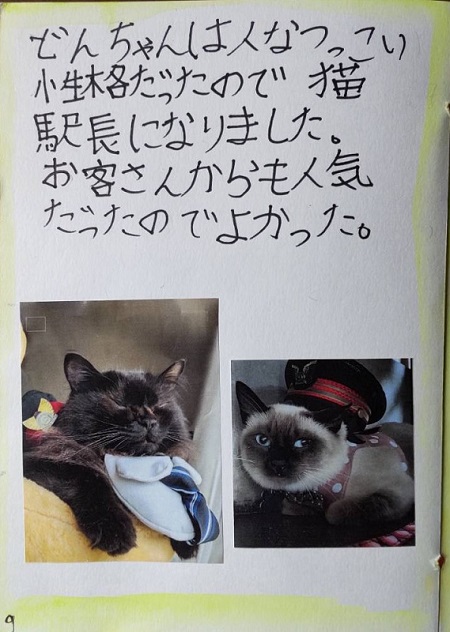 どんちゃんは人なつっこい
小生格だったので 猫
駅長になりました。
お客さんからも人気
だったのでよかった。
9